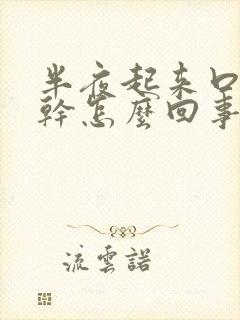 半夜起來口
幹怎麼回事
流雲諾